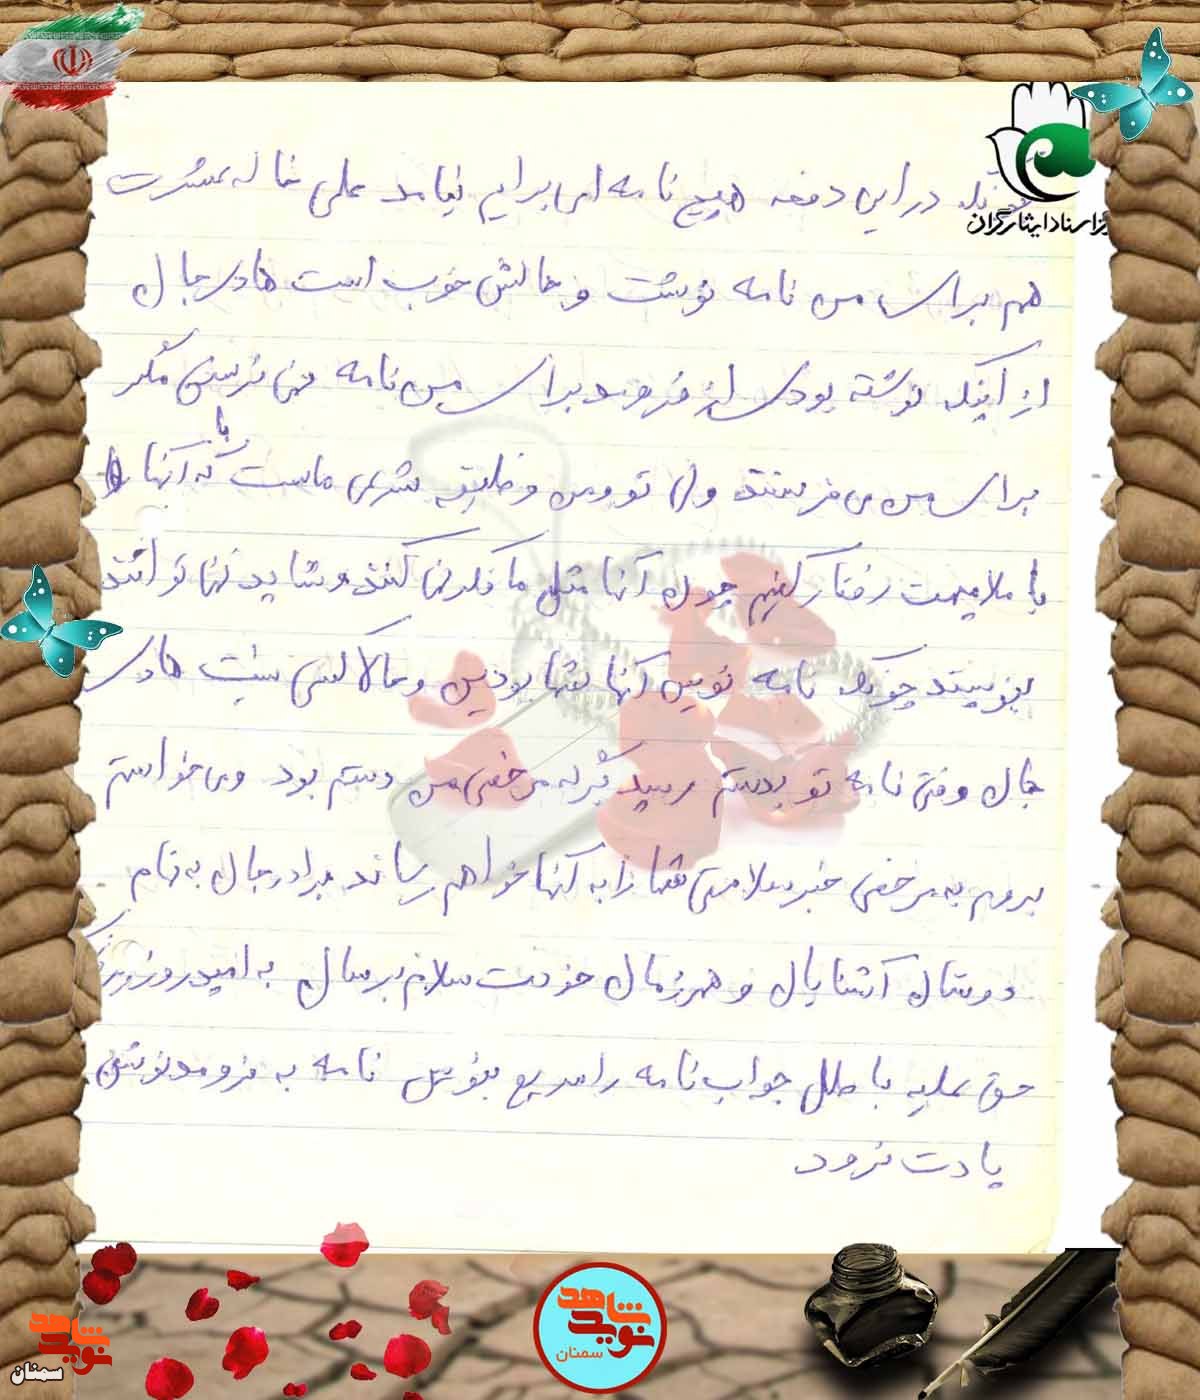 در این دفعه هیچ نامه ای برایم نیامد علی خاله عشرت
مرکز اسناد ایثارگران
هم برای من نامه نوشت و حالش خوب است هادی جان
از اینکه نوشته بودی از فرومد برای من نامه نمی فرستن مگر
برای من می فرستند ولی تو و من وظیفه شرعی ماست که با آنها
با ملایمت رفتار کنیم چون آنها مثل ما فکر نمی کنند و شاید نمی توانند
بنویسند چونکه نامه نویس آنها شما بودین و حالا کسی نیست هادی
جان وقتی نامه تو بدستم رسید برگه مرخصی من دستم بود و می خواستم
بروم به مرخصی خبر سلامتی شما را به آنها خواهم رساند برادر جان به تمام
دوستان آشنایان و همرزمان خودت سلام برسان به امید روز بزرگ
حق علیه باطل جواب نامه را سریع بنویس نامه به فرومد نوشتن
یادت نرود
نوید شاهد
سمنان
نوید شاهد
سمنان